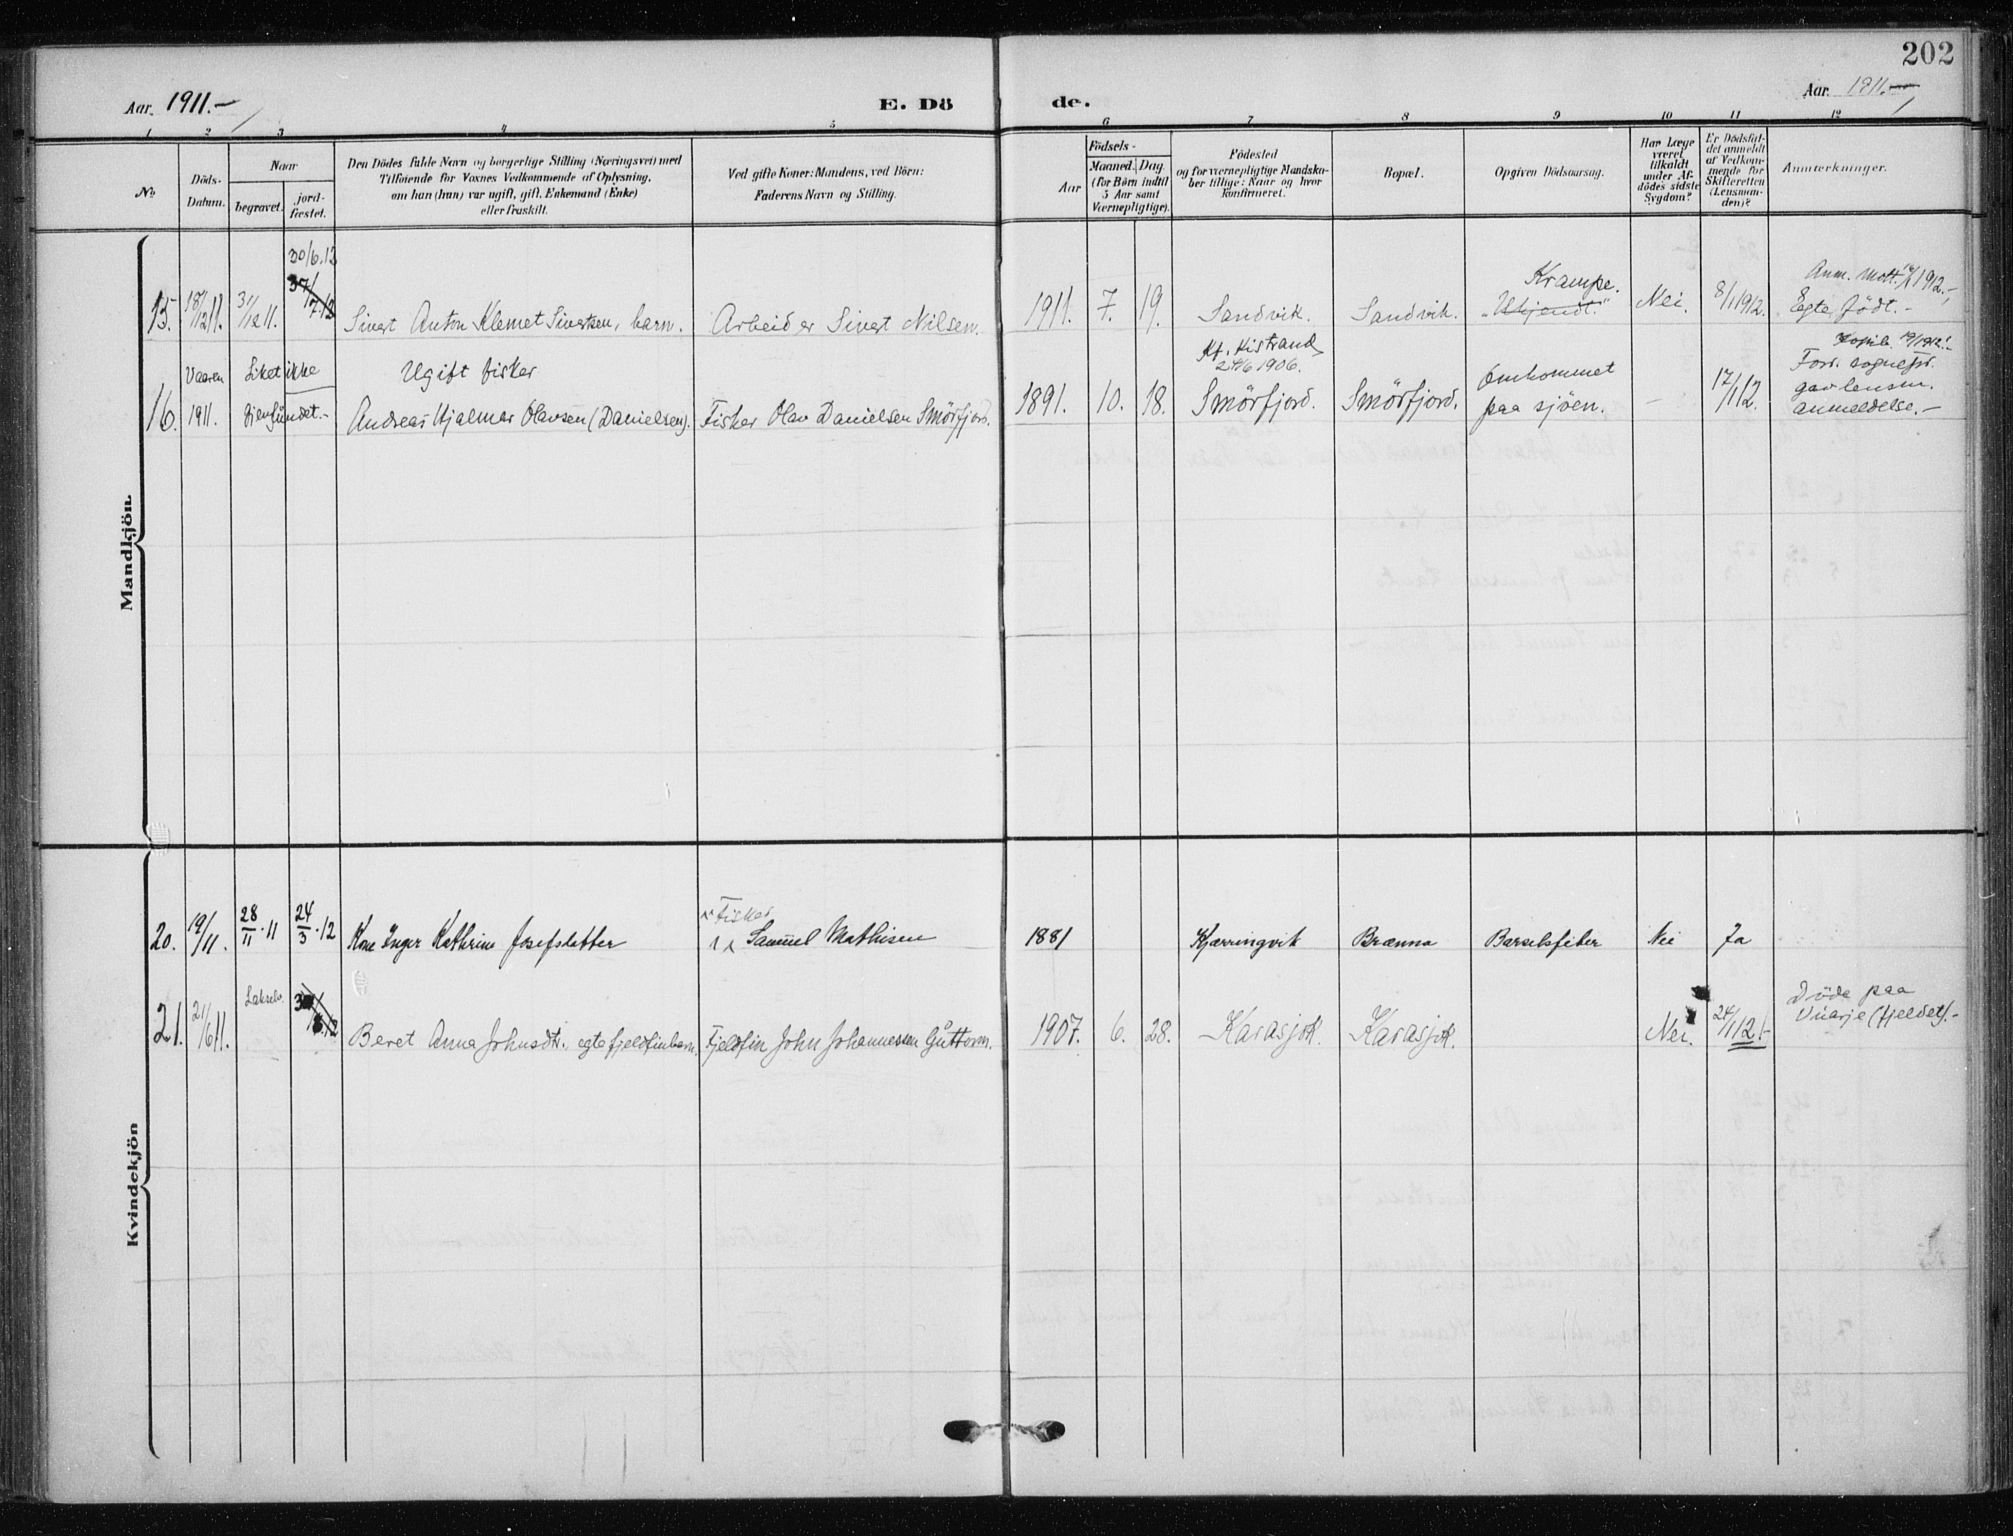 202
Aar. 1911.-
E. Dö
de.
Aar. 1911.-
1 2 3 4 5 6 7 8 9 10 11 12
No
Döds-
Datum.
Naar
begravet.
jord-
fæstet.
Den Dödes fulde Navn og borgerlige Stilling (Næringsvei) med
Tilföiende for Voxnes Vedkommende af Oplysning,
om han (hun) var ugift, gift, Enkemand (Enke)
eller fraskilt.
Ved gifte Koner: Mandens, ved Börn:
Faderens Navn og Stilling.
Födsels-
Aar
Maaned.
Dag.
(for Börn indtil
5 Aar samt
Værnepligtige).
Födested
og for værnepligtige Mandska-
ber tillige: Naar og hvor
konfirmeret.
Bopæl.
Opgiven Dödsaarsag.
Har Læge
været
tilkaldt
under Af-
dödes sidste
Sygdom?
Er Dödsfal-
det anmeldt
af Vedkom-
mende for
Skifteretten
(Lensman-
den)?
Anmærkninger.
Mandkjön.
30/6.12
15. 18/12 11. 31/12 11. Sivert Anton Klemet Sivertsen, barn. Arbeider Sivert Nilsen. 1911. 7. 19. Sandvik. Sandvik. Krampe. Nei. 8/1 1912. Anm. Mott. 1912.
Egte født.-
Vaaren Liket ikke Ugift fisker Kf. Kistrand
24/6 1906.
16. 1911. gjenfundet.- Andreas Hjalmar Olavsen (Danielsen). Fisker Olav Danielsen Smörfjord. 1891. 10. 18. Smörfjord. Smörfjord. Omkommet
paa sjöen. - 17/1 12. Forr. sognepr.
gav lensm.
anmeldelse.-
Kvindekjön
20. 19/11. 28/11.11 24/3.12 Kone Inger Kathrine Josefsdatter Fisker
Samuel Mathisen 1881 Kjærringvik Brænna Barselsfeber Nei Ja
21. 21/6 11. Lakselv. Beret Anna Johnsdtr. egte fjeldfinbarn. Fjeldfin John Johannessen Guttorm. 1907. 6. 28. Karasjok. Karasjok. Nei. 24/1 12.- Döde paa
Vuorje (fjeldet).-